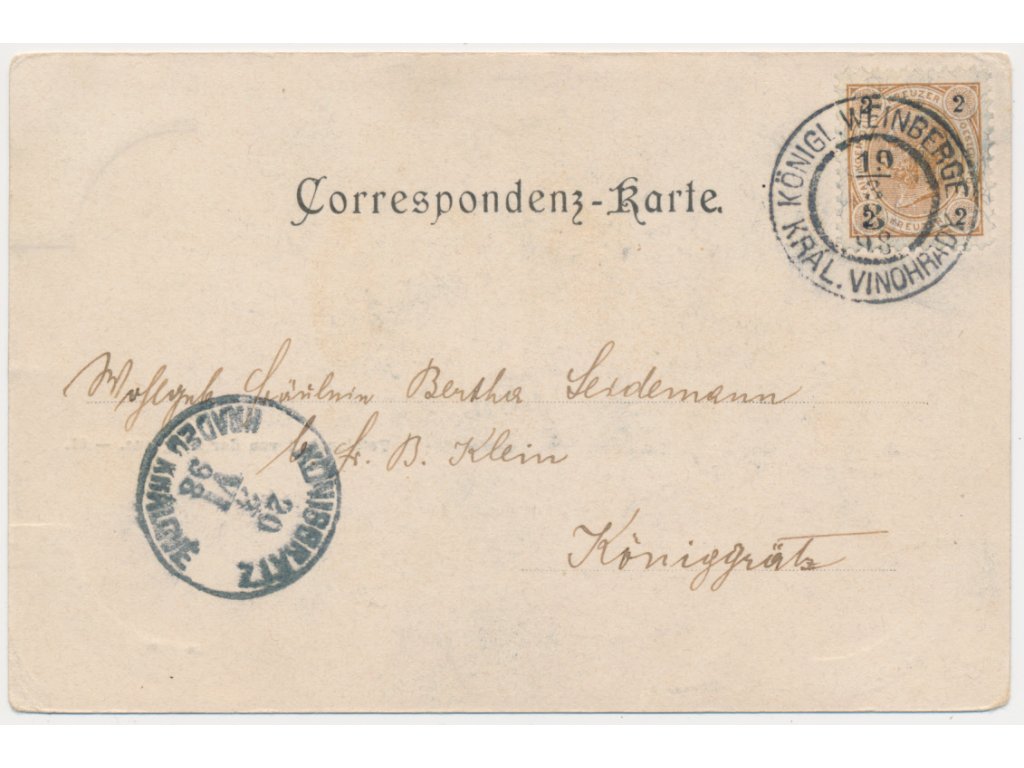 2 KREUZER 2
2 KREUZER 2
KÖNIGL. WEINBERGE
19
3
98
KRÁL. VINOHRADY
Correspondenz-Karte.
Wohlgeb Fräulein Bertha Seidemann
b Fr. B. Klein
Königgrätz
KÖNIGGRÄTZ
20
VI
98
HRADEC KRÁLOVÉ